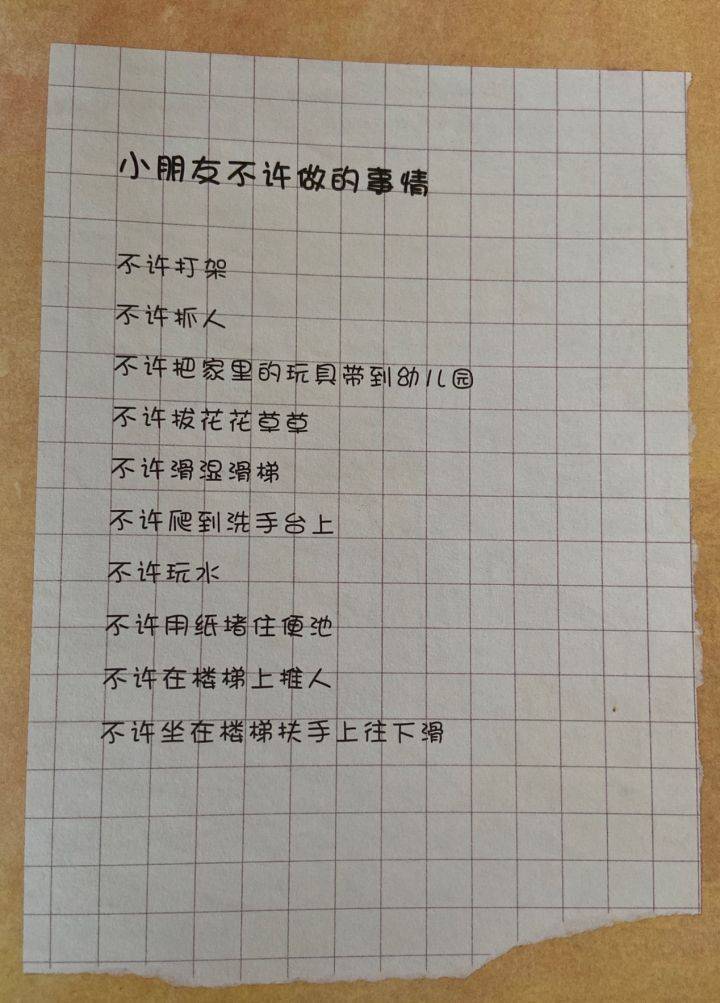 小朋友不许做的事情
不许打架
不许抓人
不许把家里的玩具带到幼儿园
不许拔花花草草
不许滑湿滑梯
不许爬到洗手台上
不许玩水
不许用纸堵住便池
不许在楼梯上推人
不许坐在楼梯扶手上往下滑